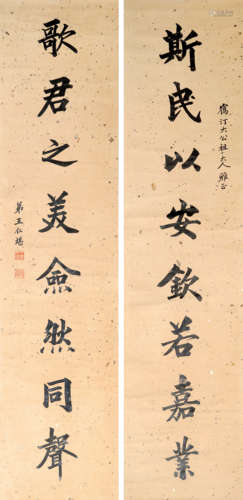 斯民以安欽若嘉業
大公祖大人雅正
歌君之美僉然同聲
弟王仁堪